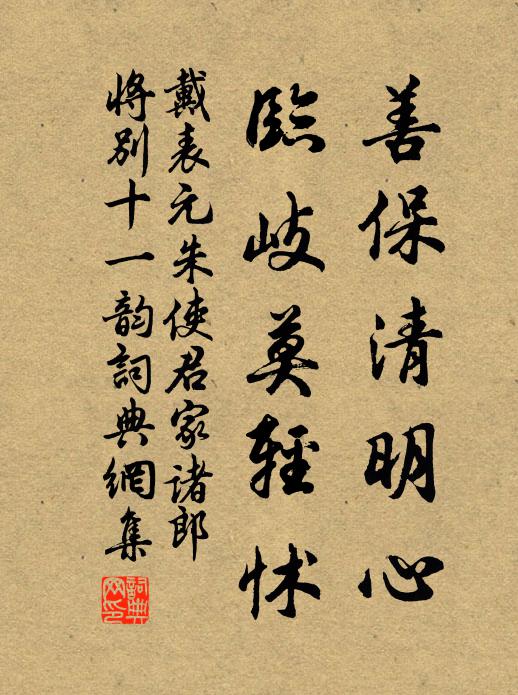 善保清明心
臨岐莫輕怵
戴表元朱使君家诸郎
將別十一韵詞典網集
詞典网印